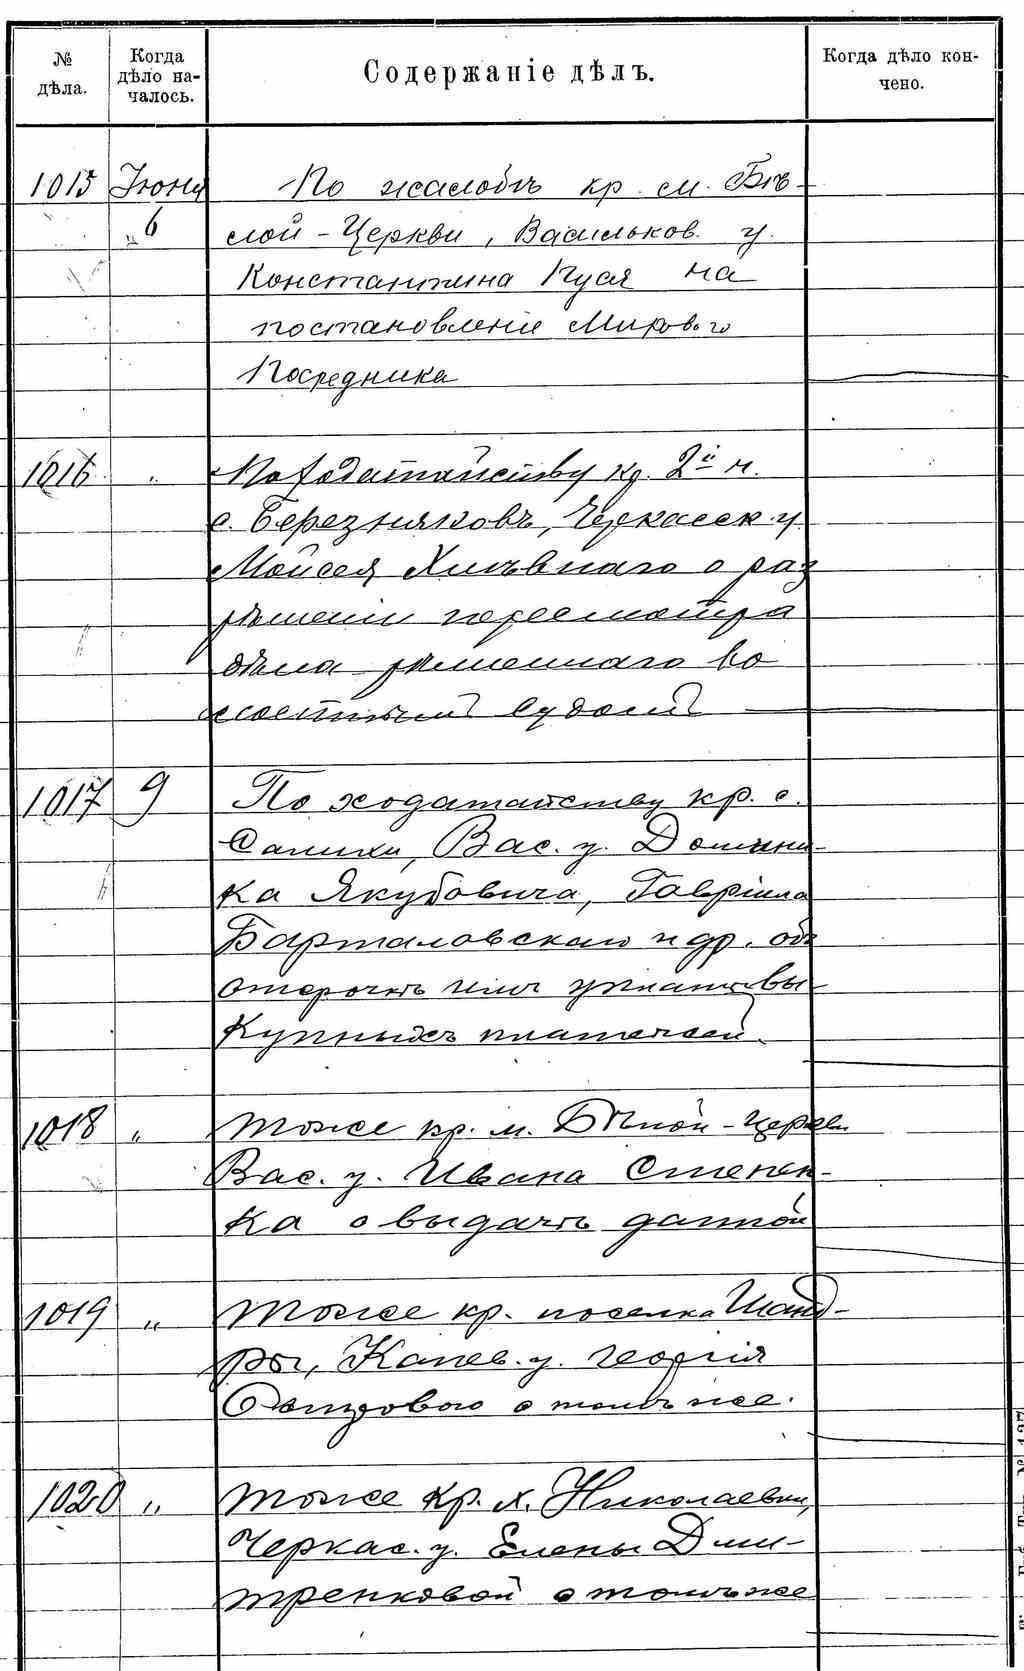 № дѣла.
Когда дѣло на-
чалось.
Содержаніе дѣлъ.
Когда дѣло кон-
чено.
1015 Іюня По жалобѣ кр. м. Бѣ-
„6 лой-Церкви, Васильков. у.
Константина Пуся на
постановленіе Мирового
Посредника
1016 „ По ходатайству кр. 2й н.
с. Березняковъ, Черкасск. у.
Мойсея о раз
рѣшеніи пересмотра
дѣла рѣшеннаго во
лостнымъ Судомъ
1017 9 По ходатайству кр. с.
Вас. у. Домини-
ка Якубовича, Гавріила
Барталовскаго и др. объ
отсрочкѣ имъ уплаты вы-
купныхъ платежей.
1018 „ Тоже кр. м. Бѣлой-Церкви
Вас. у. Ивана Степен-
ка о выдачѣ данной
1019 „ Тоже кр. поселка Шанд-
ры, Канев. у. Георгія
о томъ же.
1020 „ Тоже кр. х. Николаевки,
Черкас. у. Елены Дми-
тренковой о томъ же